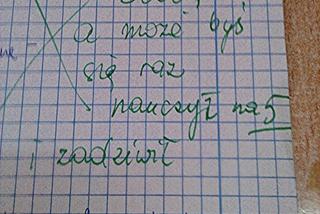 a może byś
się raz
nauczył na 5
i zadziwił